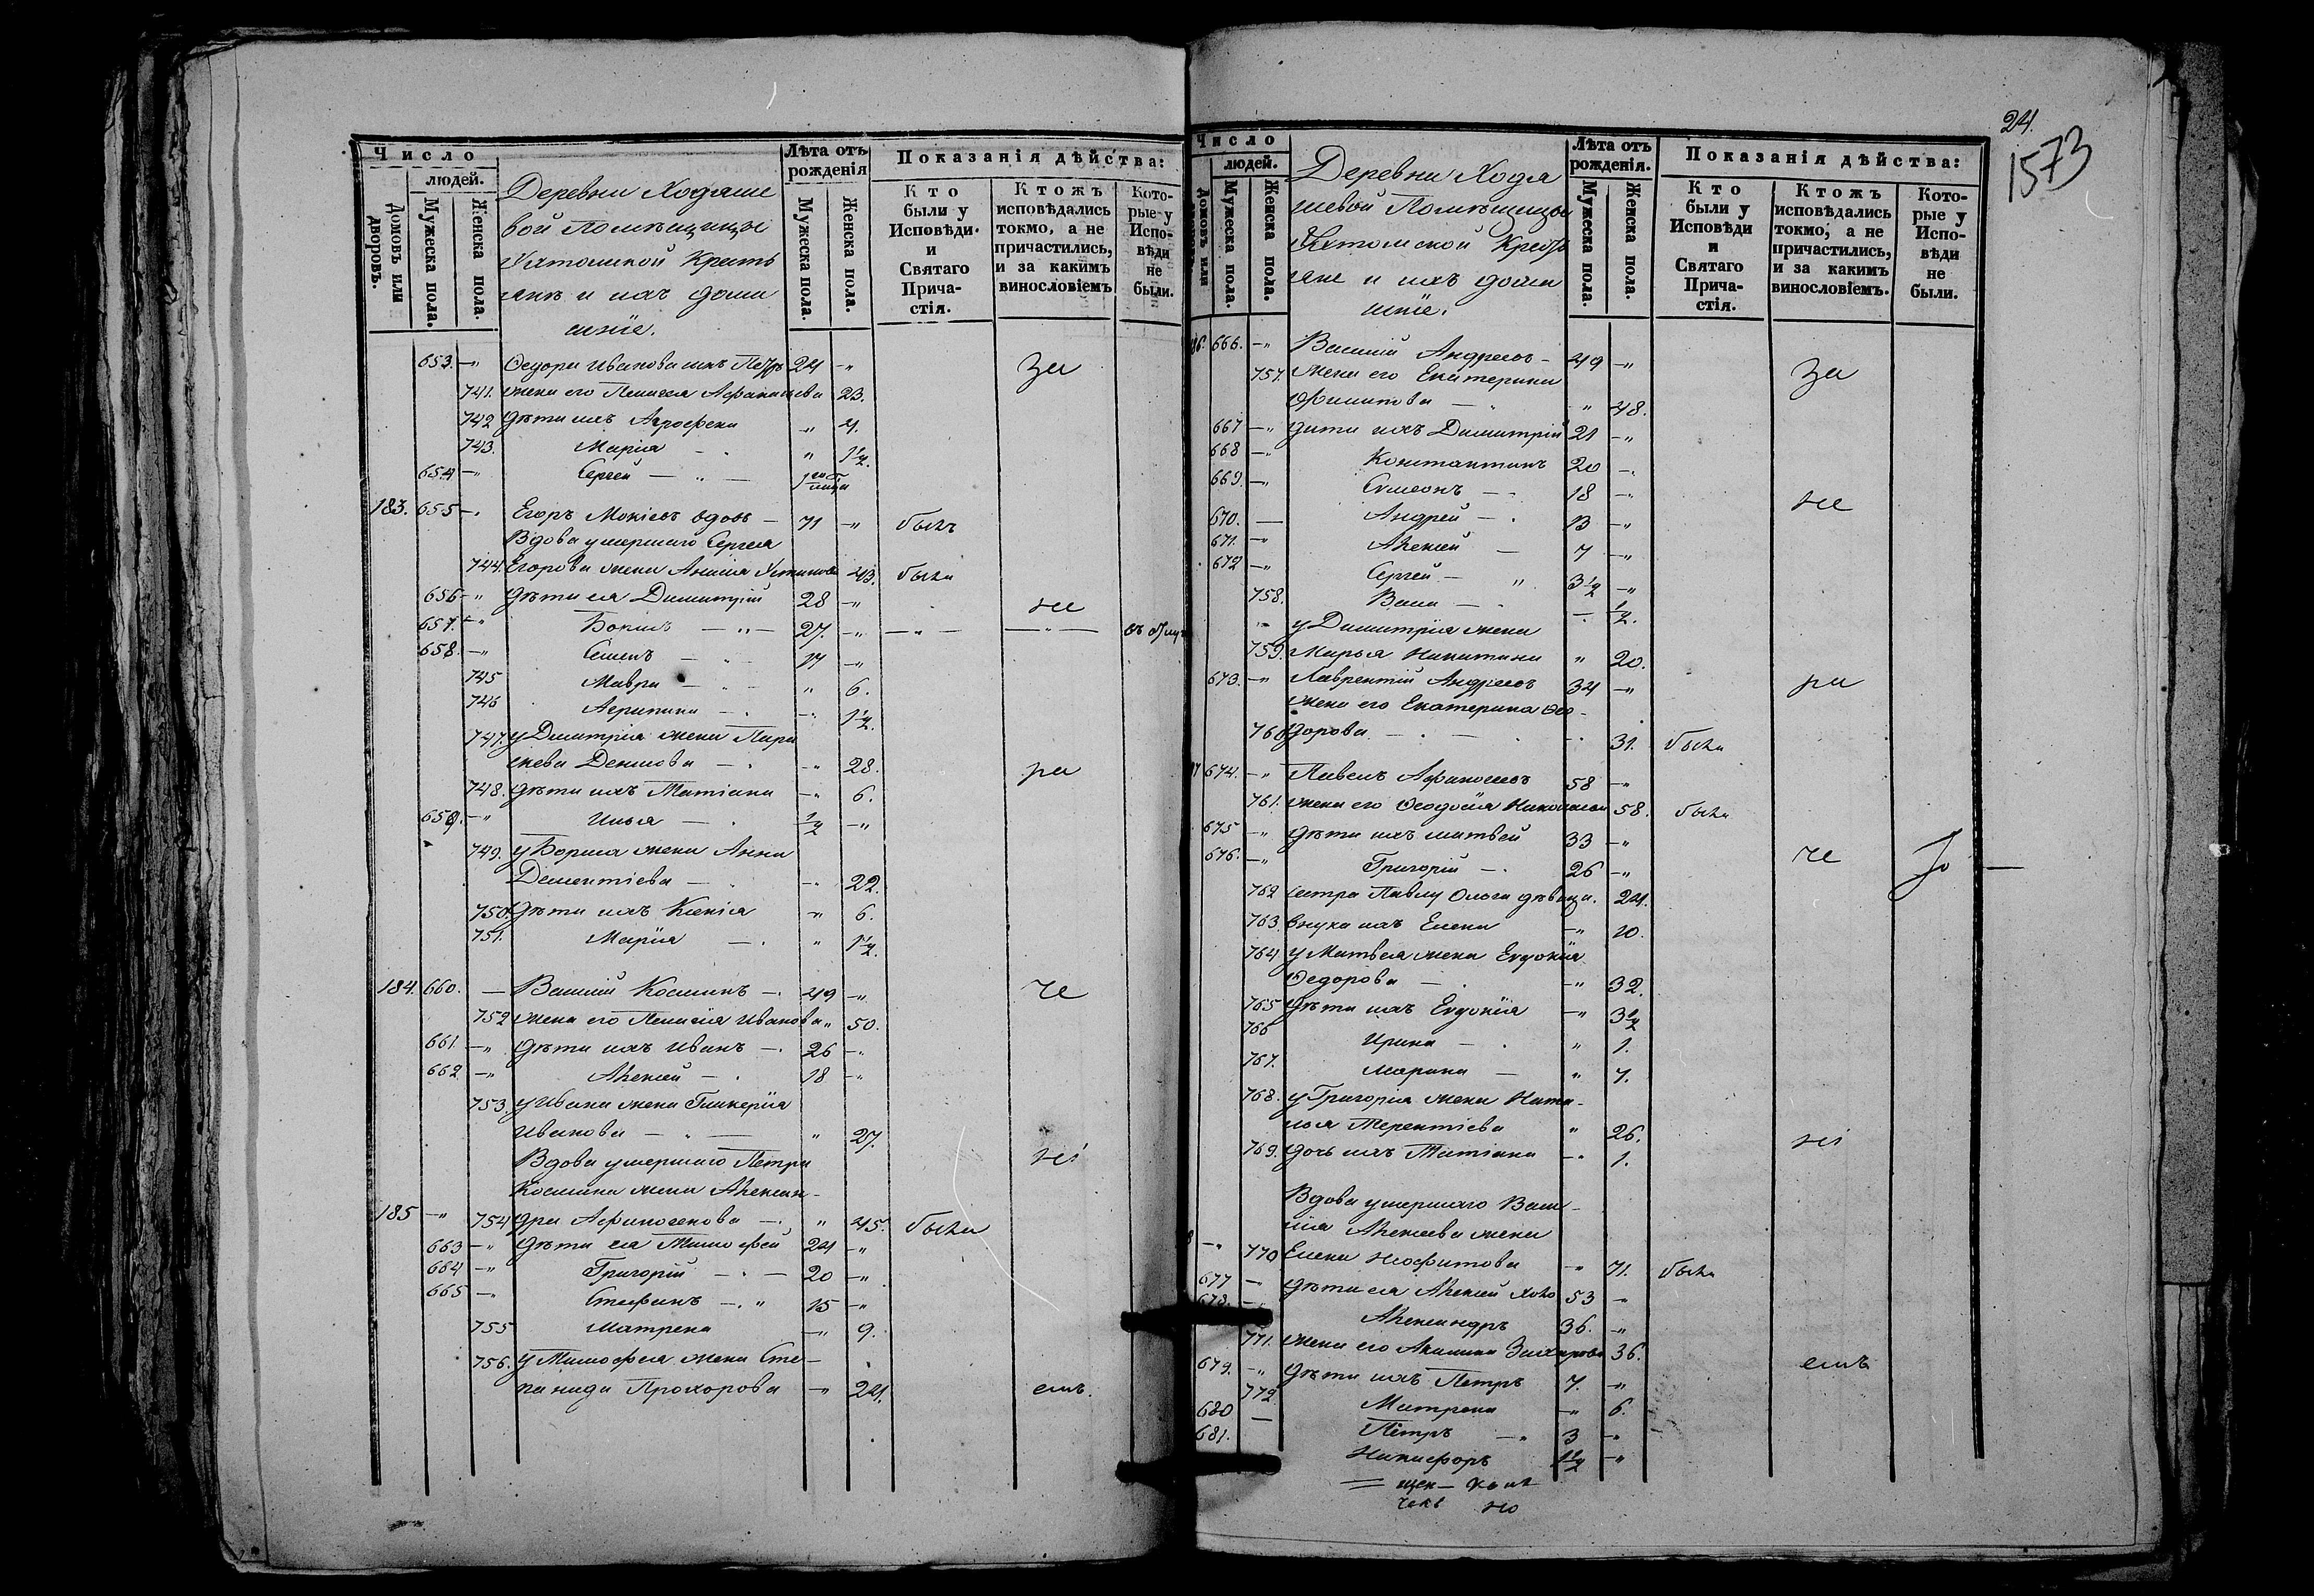 Число
людей.
Домовъ или дворовъ.
Мужеска пола.
Женска пола.
Деревни Ходяше
вой Помѣщицы
Ухтомской Кресть
янѣ и ихъ дома
шніе.
Лѣта отъ рожденія
Мужеска пола.
Женска пола.
Показанія дѣйства:
Кто были у Исповѣди и Святаго Прича-стія.
Ктожъ исповѣдались токмо, а не причастились, и за какимъ винословіемъ
Кото-рые у Испо-вѣди не были.
653. -" Ѳедора Иванова сынъ Петръ 24 -" За
741. жена его Пелагея 23.
742 Дѣти ихъ Агрофена " 4.
743. Марія " 1½.
654 -" Сергей
183. 655 -" Егоръ вдовъ - 71 -" былъ
Вдова умершаго Сергея
744. Егорова жена 43. была
656 -" Дѣти ея Димитрій 28 -" не
657. -" Борисъ - " - 27. -"
658. -" Семенъ 14 -"
745 Мавра " 6.
746 Агрипина -" 1½.
747. у Димитрія жена Пара
скева Денисова -" 28. ра
748. Дѣти ихъ Татіана -" 6.
659. -" Илья ½ -"
749. у Бориса жена Анна
Дементіева -" 22.
750. Дѣти ихъ Ксенія -" 6.
751. Марія " 1½.
184. 660. - Василій Косминъ -. 49 -" че
752 жена его Пелагія Иванова " 50.
661 -" Дѣти ихъ Иванъ -. 26 -"
662 -" Алексей -. 18 -"
753. у Ивана жена Гликерія
Иванова " 27.
Вдова умершаго Петра
Космина жена Алексан-
185 -" 754 дра Афиногенова " 45. была
663 -" Дѣти ея Тимофей 24 -"
664 -" Григорій 20 -"
665 -" Стефанъ 15 -"
755 Матрена -" 9.
756. у Тимофея жена Сте-
панида Прохорова -" 24. емъ.
24.
1573
Число
людей.
Домовъ или
Мужеска пола.
Женска пола.
Деревни Ходя
шевой Помѣщицы
Ухтомской Кресть
яне и ихъ дома
шніе.
Лѣта отъ рожденія.
Мужеска пола.
Женска пола.
Показанія дѣйства:
Кто были у Исповѣди и Святаго Прича-стія.
Ктожъ исповѣдались токмо, а не причастились, и за какимъ винословіемъ.
Кото-рые у Испо-вѣди не были.
86. 666. -" Василій Андреевъ - 49 -" За
757. жена его Екатерина
Филипова " 48.
667 -" Дѣти ихъ Димитрій 21 -"
668 -" Константинъ 20 -.
669. -" Симеонъ 18 -" не
670. - Андрей 13 -"
671. -" Алексей 7 -"
672 -" Сергей 3½ -"
758. ½.
у Димитрія жена
759. Марья Никитина " 20.
673. -" Лаврентій Андреевъ 34 -" ра
жена его Екатерина Ѳео-
760 дорова 31. была
7 674. -" Павелъ 58 -"
761. жена его Ѳеодосія 58. была
675 -" Дѣти ихъ Матвей 33 -"
676. -" Григорій 26 -" че
762 сестра Павлу Ольга дѣвица. 24.
763. внука ихъ Елена -" 10.
764 у Матвея жена Евдокія
Ѳедорова -" 32.
765 Дѣти ихъ Евдокія -" 3½
766 Ирина " 1.
767. Марина " 7.
768. у Григорія жена Ната-
лья Терентіева " 26.
769. дочь ихъ Татіана -" 1.
Вдова умершаго Васи-
лія Алексеева жена
8 -" 770 Елена Неофитова -" 71. была
677 - Дѣти ея Алексей холо 53 -"
678. Александръ 36. -"
771. жена его Акилина Захарова 36.
679. -" Дѣти ихъ Петръ 7. -" емъ
772 Матрена -" 6.
680 - Петръ 3 -"
681. - Никифоръ 1½ -"